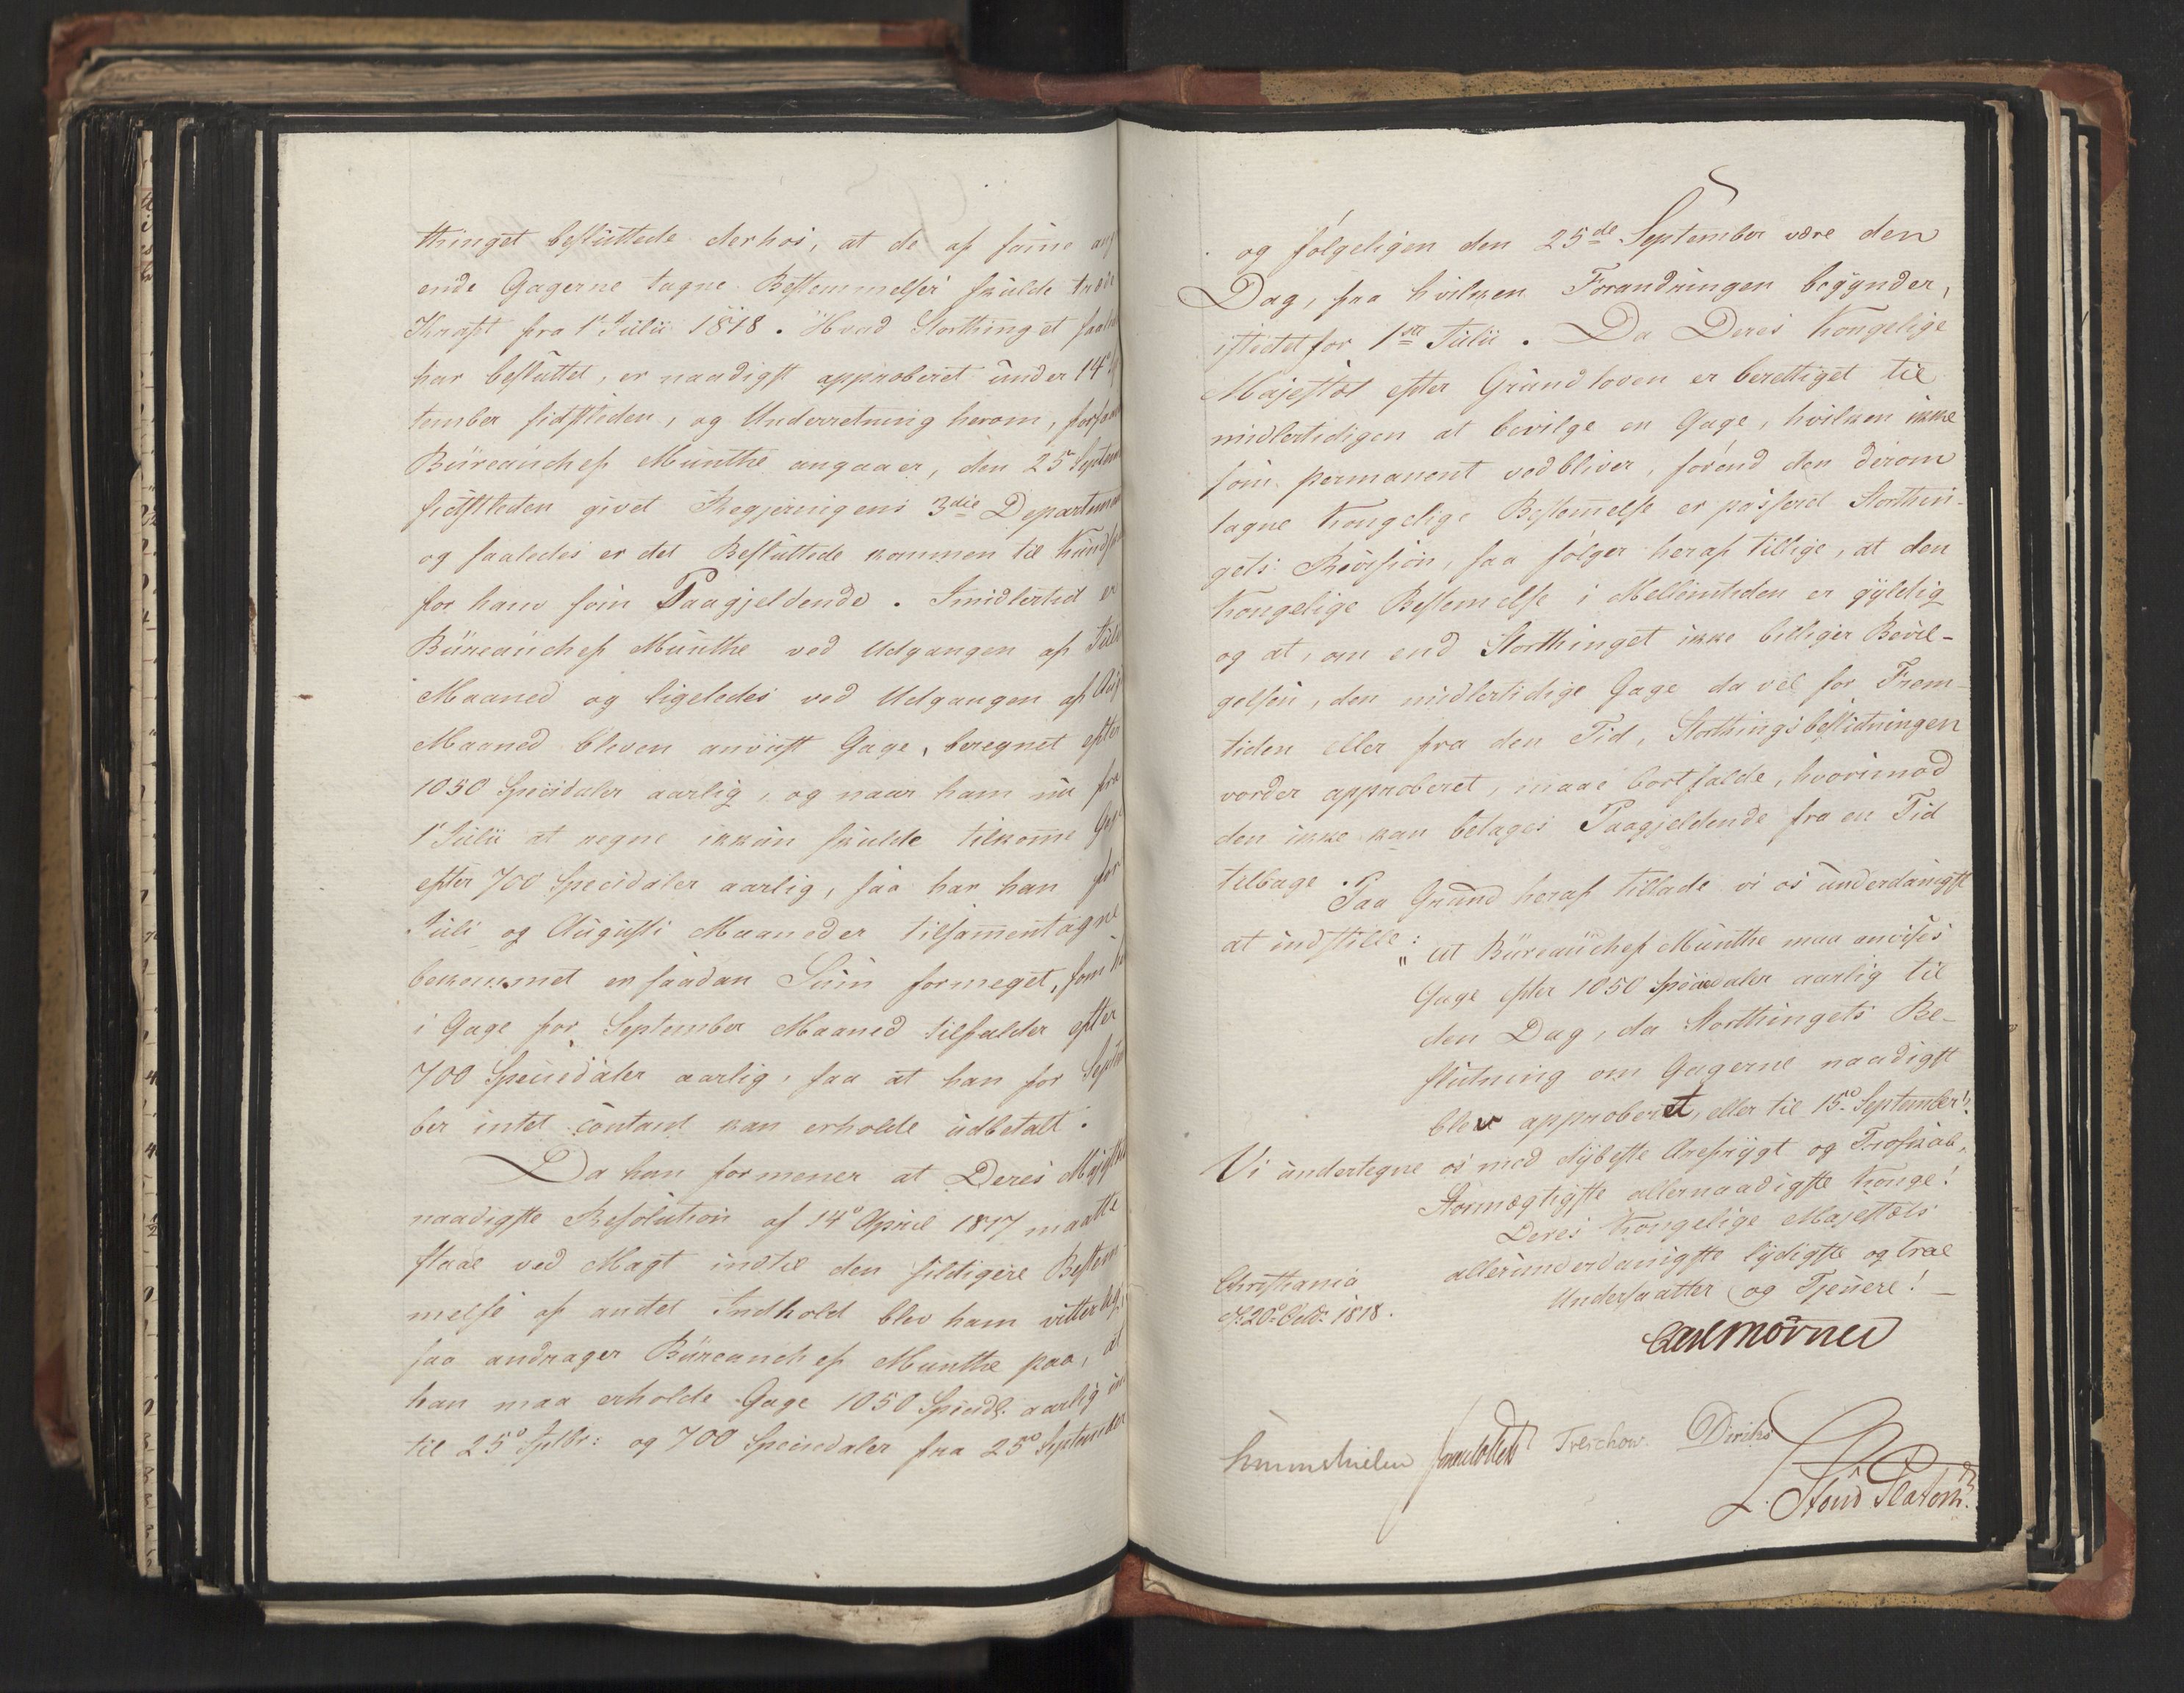 thinget besluttede derhos, at de af samme ang
ende Gagerne tagne Bestemmelser skulde træde
Kraft fra 1e Julii 1818. Hvad Storthinget saal
har besluttet, er naadigst approberet under 14de
tember sidstleden, og Underretning herom, forsaa
Büreauchef Munthe angaaer, den 25e Septem
sidstleden givet Regjeringens 3die Departem
og saaledes er det Besluttede kommen til Kundsk
for ham som Paagjeldende. Imidlertid er
Büreauchef Munthe ved Udgangen af Julii
Maaned og ligeledes ved Udgangen af Aug
Maaned bleven anviist Gage, beregnet efter
1050 Speciedaler aarlig, og naar ham nu fra
1e Julii at regne ikkun skulde tilkomme Gage
efter 700 Speciedaler aarlig, saa har han for
Juli og Augusti Maaneder tilsammentagne
bekommet en saadan Sum formeget, som
i Gage for September Maaned tilfalder efter
700 Speciedaler aarlig, saa at han for Septem
ber intet contant kan erholde udbetalt.
Da han formener at Deres Majestæts
naadigste Resolution af 14de April 1817 maatte
staae ved Magt indtil den sildigere Bestem
melse af andet Indhold blev ham vitterlig,
saa andrager Büreauchef Munthe paa, at
han maa erholde Gage 1050 Speciedl. aarlig in
til 25de Septbr: og 700 Speciedaler fra 25de September
og følgeligen den 25de September være den
Dag, fra hvilken Forandringen begynder,
istedetfor 1ste Julii. Da Deres Kongelige
Majestæt efter Grundloven er berettiget til
midlertidigen at bevilge en Gage, hvilken ikke
som permanent vedbliver, forend den derom
tagne Kongelige Bestemmelse er passered Storthin-
gets Revision, saa følger heraf tillige, at den
Kongelige Bestemmelse i Mellemtiden er gyldig
og at, om end Storthinget ikke billiger Bevil-
gelsen, den midlertidige Gage da vel for Frem-
tiden eller fra den Tid, Storthingsbeslutningen
vorder approberet, maae bortfalde, hvorimod
den ikke kan betages Paagjeldende fra en Tid
tilbage.
Paa Grund heraf tillade vi os underdanigst
at indstille:
"At Büreauchef Munthe maa anvises
Gage efter 1050 Speciedaler aarlig til
den Dag, da Storthingets Be-
slutning om Gagerne naadigst
blev approberet, eller til 15de September".
Vi undertegne os med dybeste Ærefrygt og Troskab,
Stormægtigste allernaadigste Konge!
Deres Kongelige Majestæts
allerunderdanigste lydigste og troe
Undersaatter og Tjenere!
Christiania
d. 20de Octbr 1818.
Carl Mörner
Sommerhielm Collett Treschow. Diriks
L. Stoud Platou